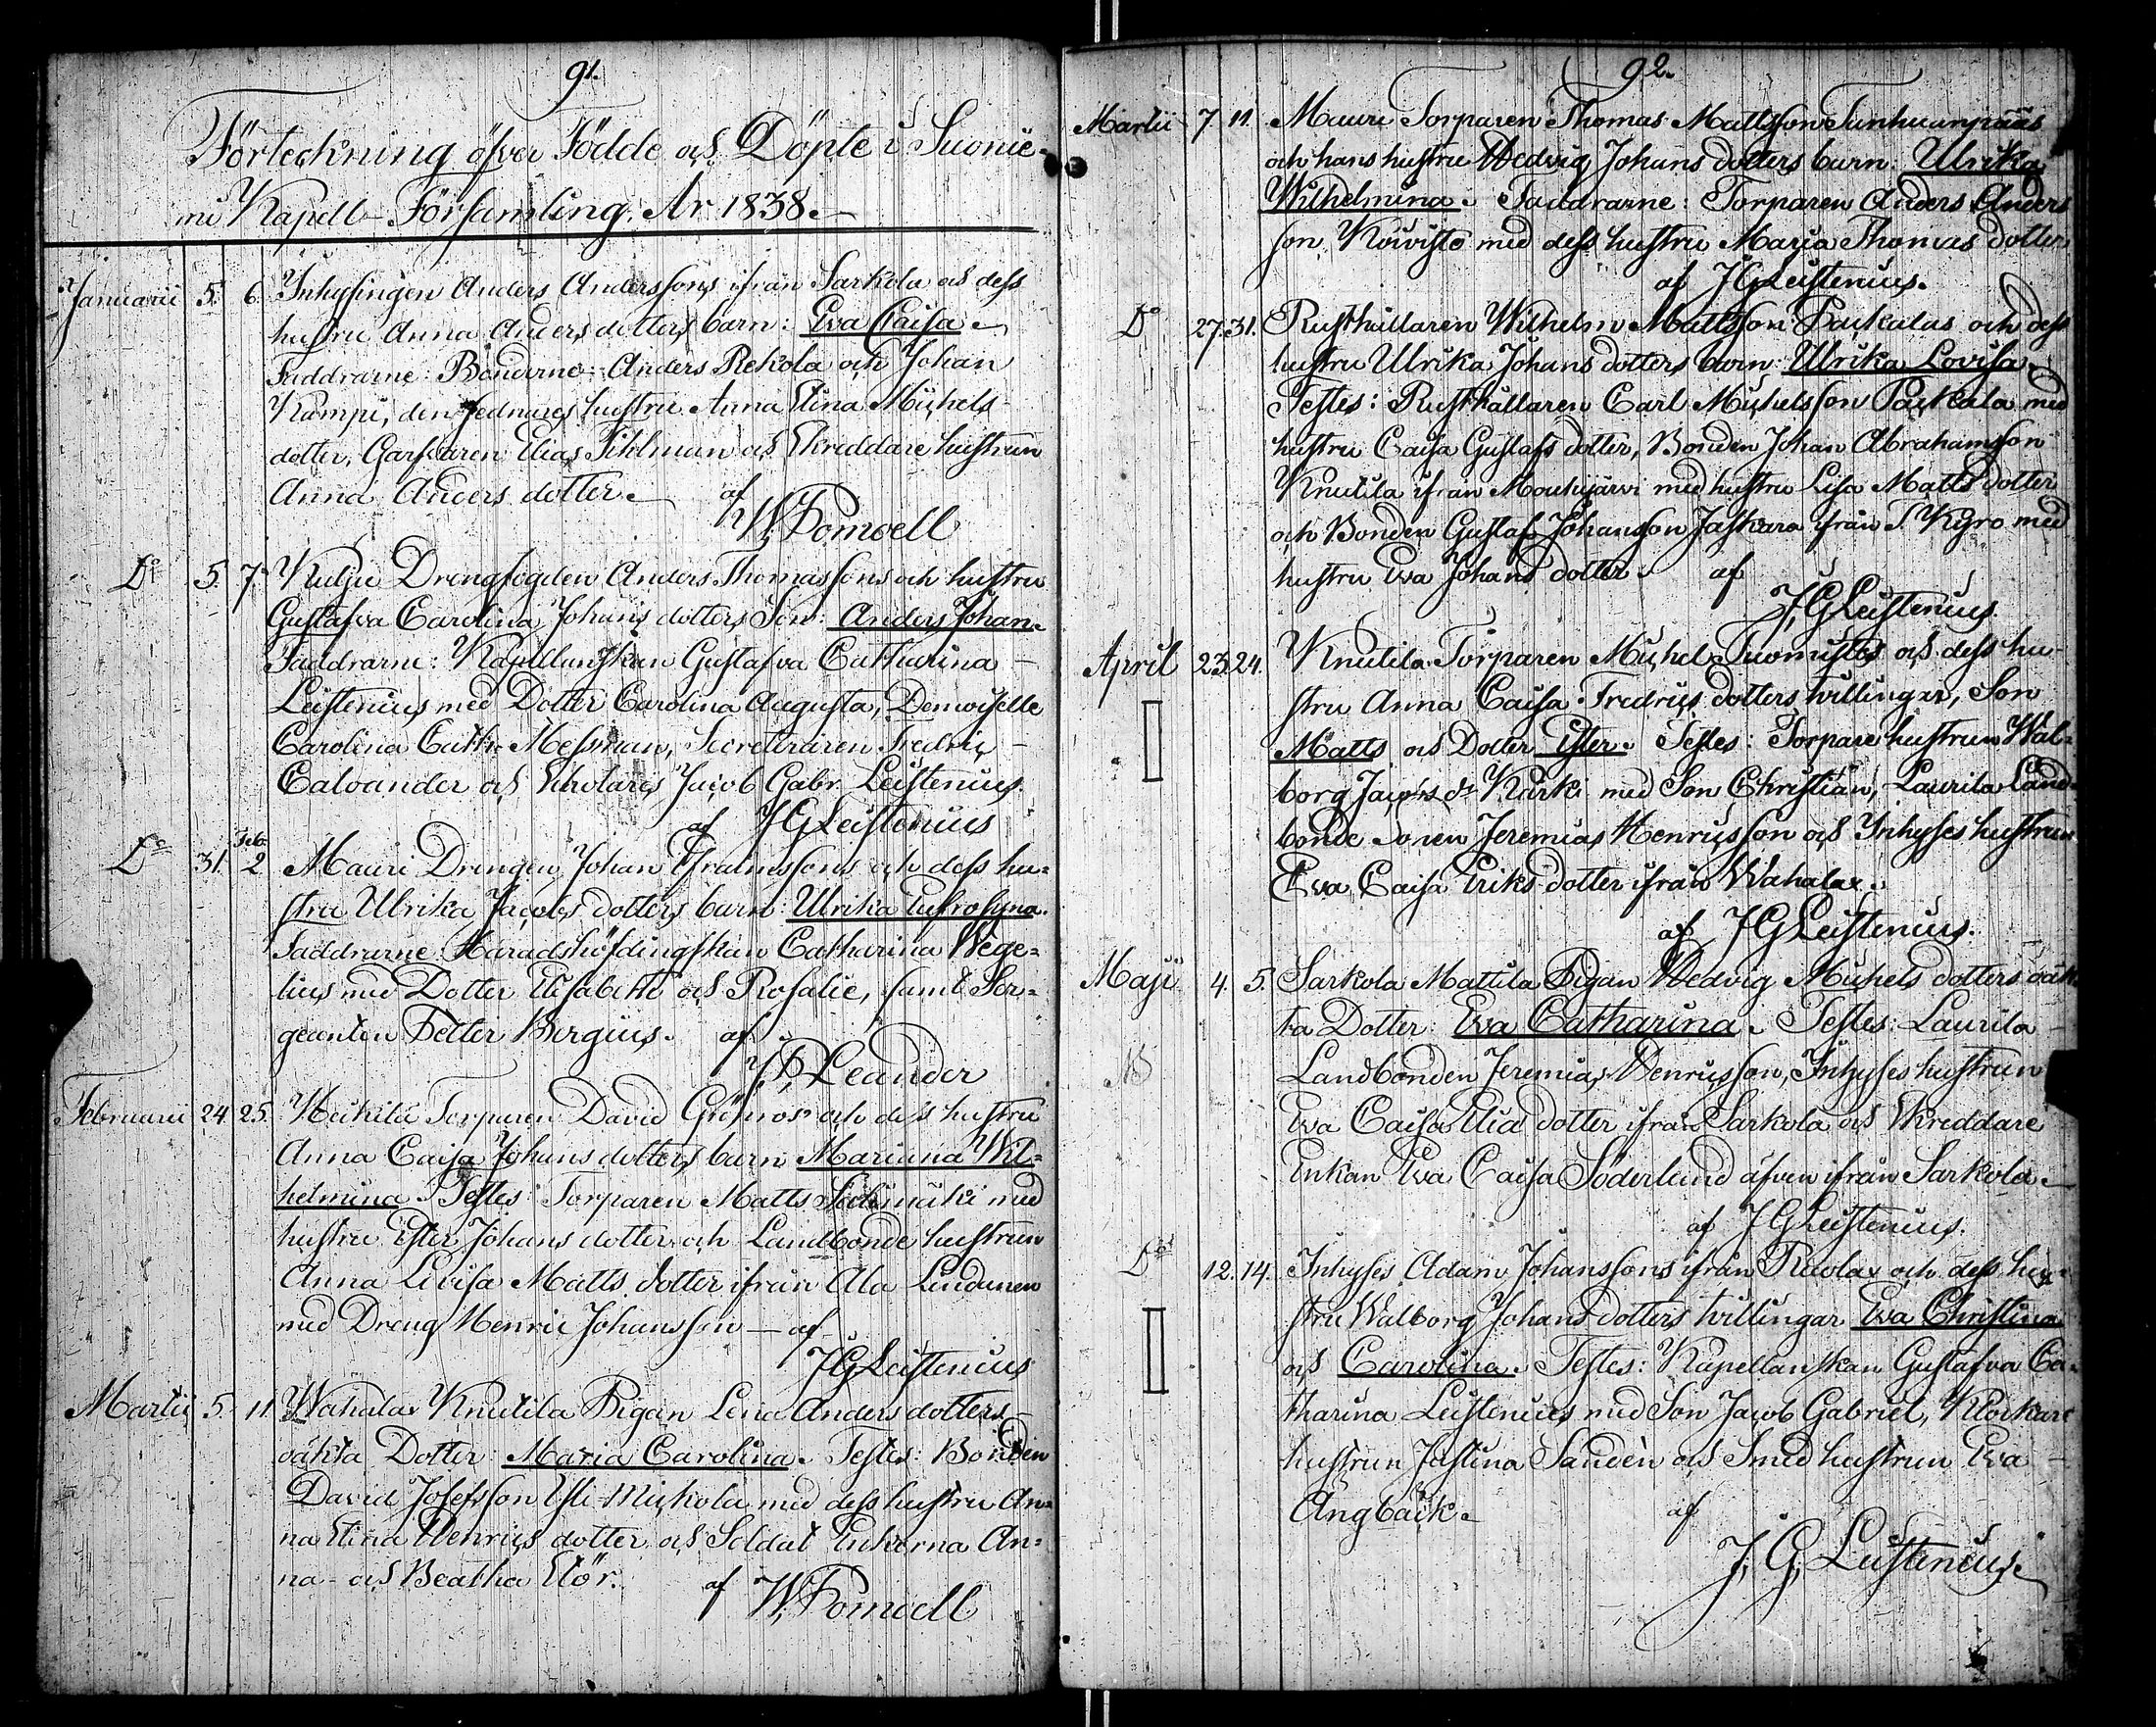 91.
Förteckning öfver Födde och Döpte i Suonie-
mi Kapell-Församling. År 1838.
Januarii 5. 6. Inhysingen Anders Anderssons ifrån Sarkola och dess
hustru Anna Anders dotters barn: Eva Caisa.
Faddrarne: Bönderne Anders Rekola och Johan
Kampi, den sednares hustru Anna Stina Michels
dotter, Garfvaren Elias Tihlman och Skreddare hustrun
Anna Anders dotter. af
W, Pomoell
Do 5. 7. Kulju Drengfogden Anders Thomassons och hustru
Gustafva Carolina Johans dotters Son: Anders Johan.
Faddrarne: Kapellanskan Gustafva Catharina
Leistenius med Dotter Carolina Augusta, Demoiselle
Carolina Cath. Messman, Secreteraren Fredric
Calvander och Scholaris Jacob Gabr. Leistenius.
af J G Leistenius
Do 31. Feb: 2 Mauri Drengen Johan Efraimssons och dess hu-
stru Ulrika Jacobs dotters barn: Ulrika Eufrosyna.
Faddrarne: Häradshöfdingskan Catharina Wege-
lius med Dotter Elisabeth och Rosalie, samt Ser-
geanten Petter Bergius. af
J, P, Leander
Februarii 24. 25. Heikilä Torparen David Grönros och dess hustru
Anna Caisa Johans dotters barn Marianna Wil-
helmina. Testes: Torparen Matts mäki med
hustru Ester Johans dotter och Landbonde hustrun
Anna Lovisa Matts dotter ifrån Ala Lindunen
med Dreng Henric Johansson — af
J G Leistenius
Martii 5. 11. Wahalax Knutila Pigan Lena Anders dotters
oäkta Dotter: Maria Carolina. Testes: Bonden
David Josefsson Yli-Mickola med dess hustru An-
na Stina Henrics dotter och Soldat Enkorna An-
na och Beatha Stör. af W, Pomoell
92.
Martii 7. 11. Mauri Torparen Thomas Mattsson Tunhuanpääs
och hans hustru Hedvig Johans dotters barn: Ulrika
Wilhelmina. Faddrarne: Torparen Anders Anders
son Koivisto med dess hustru Maria Thomas dotter
af J G Leistenius.
Do 27. 31. Rusthållaren Wilhelm Mattsson Paikalas och dess
hustru Ulrika Johans dotters barn: Ulrika Lovisa.
Testes: Rusthållaren Carl Michelsson Paikala med
hustru Caisa Gustafs dotter, Bonden Johan Abrahamsson
Knutila ifrån Mouhijärvi med hustru Lisa Matts dotter
och Bonden Gustaf Johansson Jaskara ifrån T. Kyro med
hustru Eva Johans dotter. af
J, G Leistenius.
April 23. 24. Knutila Torparen Michel Tuomistos och dess hu-
stru Anna Caisa Fredrics dotters tvillingar, Son
Matts och Dotter Ester. Testes: Torpare hustrun Wal-
borg Jacobs dr Kurki med Son Christian, Laurila Land-
bonde Sonen Jeremias Henricsson och Inhyses hustrun
Eva Caisa Eriks dotter ifrån Wahalax.
af J G Leistenius.
Maji 4. 5. Sarkola Mattila Pigan Hedvig Michels dotters oäk-
ta Dotter: Eva Catharina. Testes: Laurila
Landbonden Jeremias Henricsson, Inhyses hustrun
Eva Caisa Elia dotter ifrån Sarkola och Skreddare
Enkan Eva Caisa Söderlund äfven ifrån Sarkola.
af J G Leistenius.
Do 12. 14. Inhyses Adam Johanssons ifrån och dess hu-
stru Walborg Johans dotters tvillingar Eva Christina
och Carolina. Testes: Kapellanskan Gustafva Ca-
tharina Leistenius med Son Jacob Gabriel, Klockare
hustrun Justina Sandèn och Smed hustrun Eva
Ångbäck. af
J, G, Leistenius.